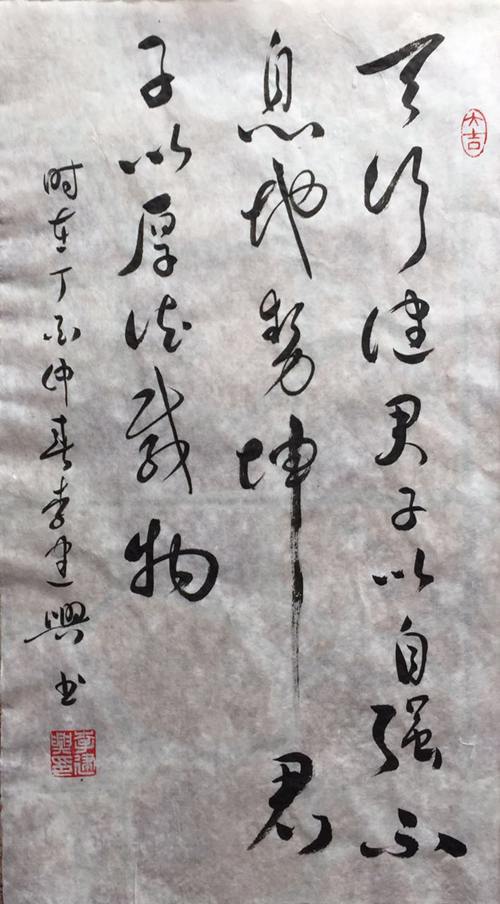 大吉
天行健君子以自强不
息地势坤君
子以厚德载物
时在丁酉仲春李建興书
李建興印